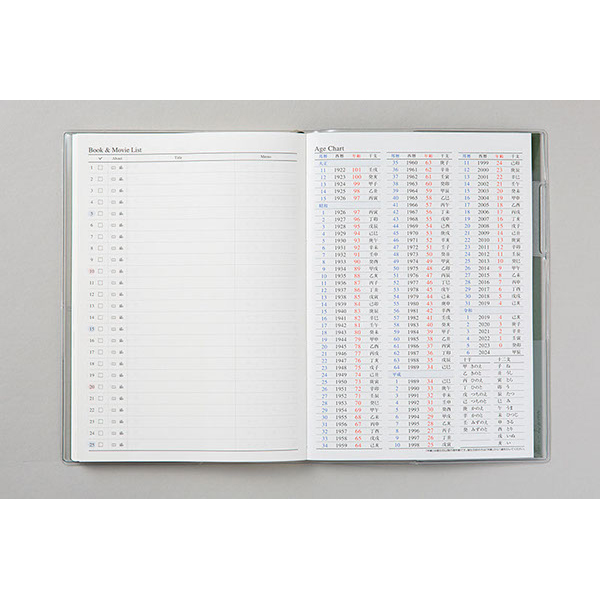 Book & Movie List
Title
Memo
1
2
3
4
5
6
7
8
9
10
11
12
13
14
15
16
17
18
19
20
21
22
23
24
25
Age Chart
和暦 西暦 年齢 干支
大正
11 1922 101 壬戌
12 1923 100 癸亥
13 1924 99 甲子
14 1925 98 乙丑
15 1926 97 丙寅
昭和
1 1926 97 丙寅
2 1927 96 丁卯
3 1928 95 戊辰
4 1929 94 己巳
5 1930 93 庚午
6 1931 92 辛未
7 1932 91 壬申
8 1933 90 癸酉
9 1934 89 甲戌
10 1935 88 乙亥
11 1936 87 丙子
12 1937 86 丁丑
13 1938 85 戊寅
14 1939 84 己卯
15 1940 83 庚辰
16 1941 82 辛巳
17 1942 81 壬午
18 1943 80 癸未
19 1944 79 甲申
20 1945 78 乙酉
21 1946 77 丙戌
22 1947 76 丁亥
23 1948 75 戊子
24 1949 74 己丑
25 1950 73 庚寅
26 1951 72 辛卯
27 1952 71 壬辰
28 1953 70 癸巳
29 1954 69 甲午
30 1955 68 乙未
31 1956 67 丙申
32 1957 66 丁酉
33 1958 65 戊戌
34 1959 64 己亥
和暦 西暦 年齢 干支
35 1960 63 庚子
36 1961 62 辛丑
37 1962 61 壬寅
38 1963 60 癸卯
39 1964 59 甲辰
40 1965 58 乙巳
41 1966 57 丙午
42 1967 56 丁未
43 1968 55 戊申
44 1969 54 己酉
45 1970 53 庚戌
46 1971 52 辛亥
47 1972 51 壬子
48 1973 50 癸丑
49 1974 49 甲寅
50 1975 48 乙卯
51 1976 47 丙辰
52 1977 46 丁巳
53 1978 45 戊午
54 1979 44 己未
55 1980 43 庚申
56 1981 42 辛酉
57 1982 41 壬戌
58 1983 40 癸亥
59 1984 39 甲子
60 1985 38 乙丑
61 1986 37 丙寅
62 1987 36 丁卯
63 1988 35 戊辰
64 1989 34 己巳
平成
1 1989 34 己巳
2 1990 33 庚午
3 1991 32 辛未
4 1992 31 壬申
5 1993 30 癸酉
6 1994 29 甲戌
7 1995 28 乙亥
8 1996 27 丙子
9 1997 26 丁丑
10 1998 25 戊寅
和暦 西暦 年齢 干支
11 1999 24 己卯
12 2000 23 庚辰
13 2001 22 辛巳
14 2002 21 壬午
15 2003 20 癸未
16 2004 19 甲申
17 2005 18 乙酉
18 2006 17 丙戌
19 2007 16 丁亥
20 2008 15 戊子
21 2009 14 己丑
22 2010 13 庚寅
23 2011 12 辛卯
24 2012 11 壬辰
25 2013 10 癸巳
26 2014 9 甲午
27 2015 8 乙未
28 2016 7 丙申
29 2017 6 丁酉
30 2018 5 戊戌
31 2019 4 己亥
令和
1 2019 4 己亥
2 2020 3 庚子
3 2021 2 辛丑
4 2022 1 壬寅
5 2023 0 癸卯
6 2024 甲辰
十干 十二支
甲 きのえ 子 ね
乙 きのと 丑 うし
丙 ひのえ 寅 とら
丁 ひのと 卯 う
戊 つちのえ 辰 たつ
己 つちのと 巳 み
庚 かのえ 午 うま
辛 かのと 未 ひつじ
壬 みずのえ 申 さる
癸 みずのと 酉 とり
戌 いぬ
亥 い